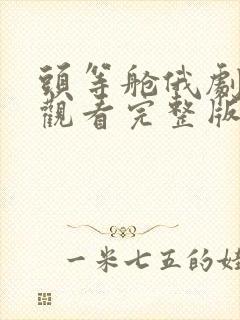 頭等舱俄劇
觀看完整版
一米七五的娃